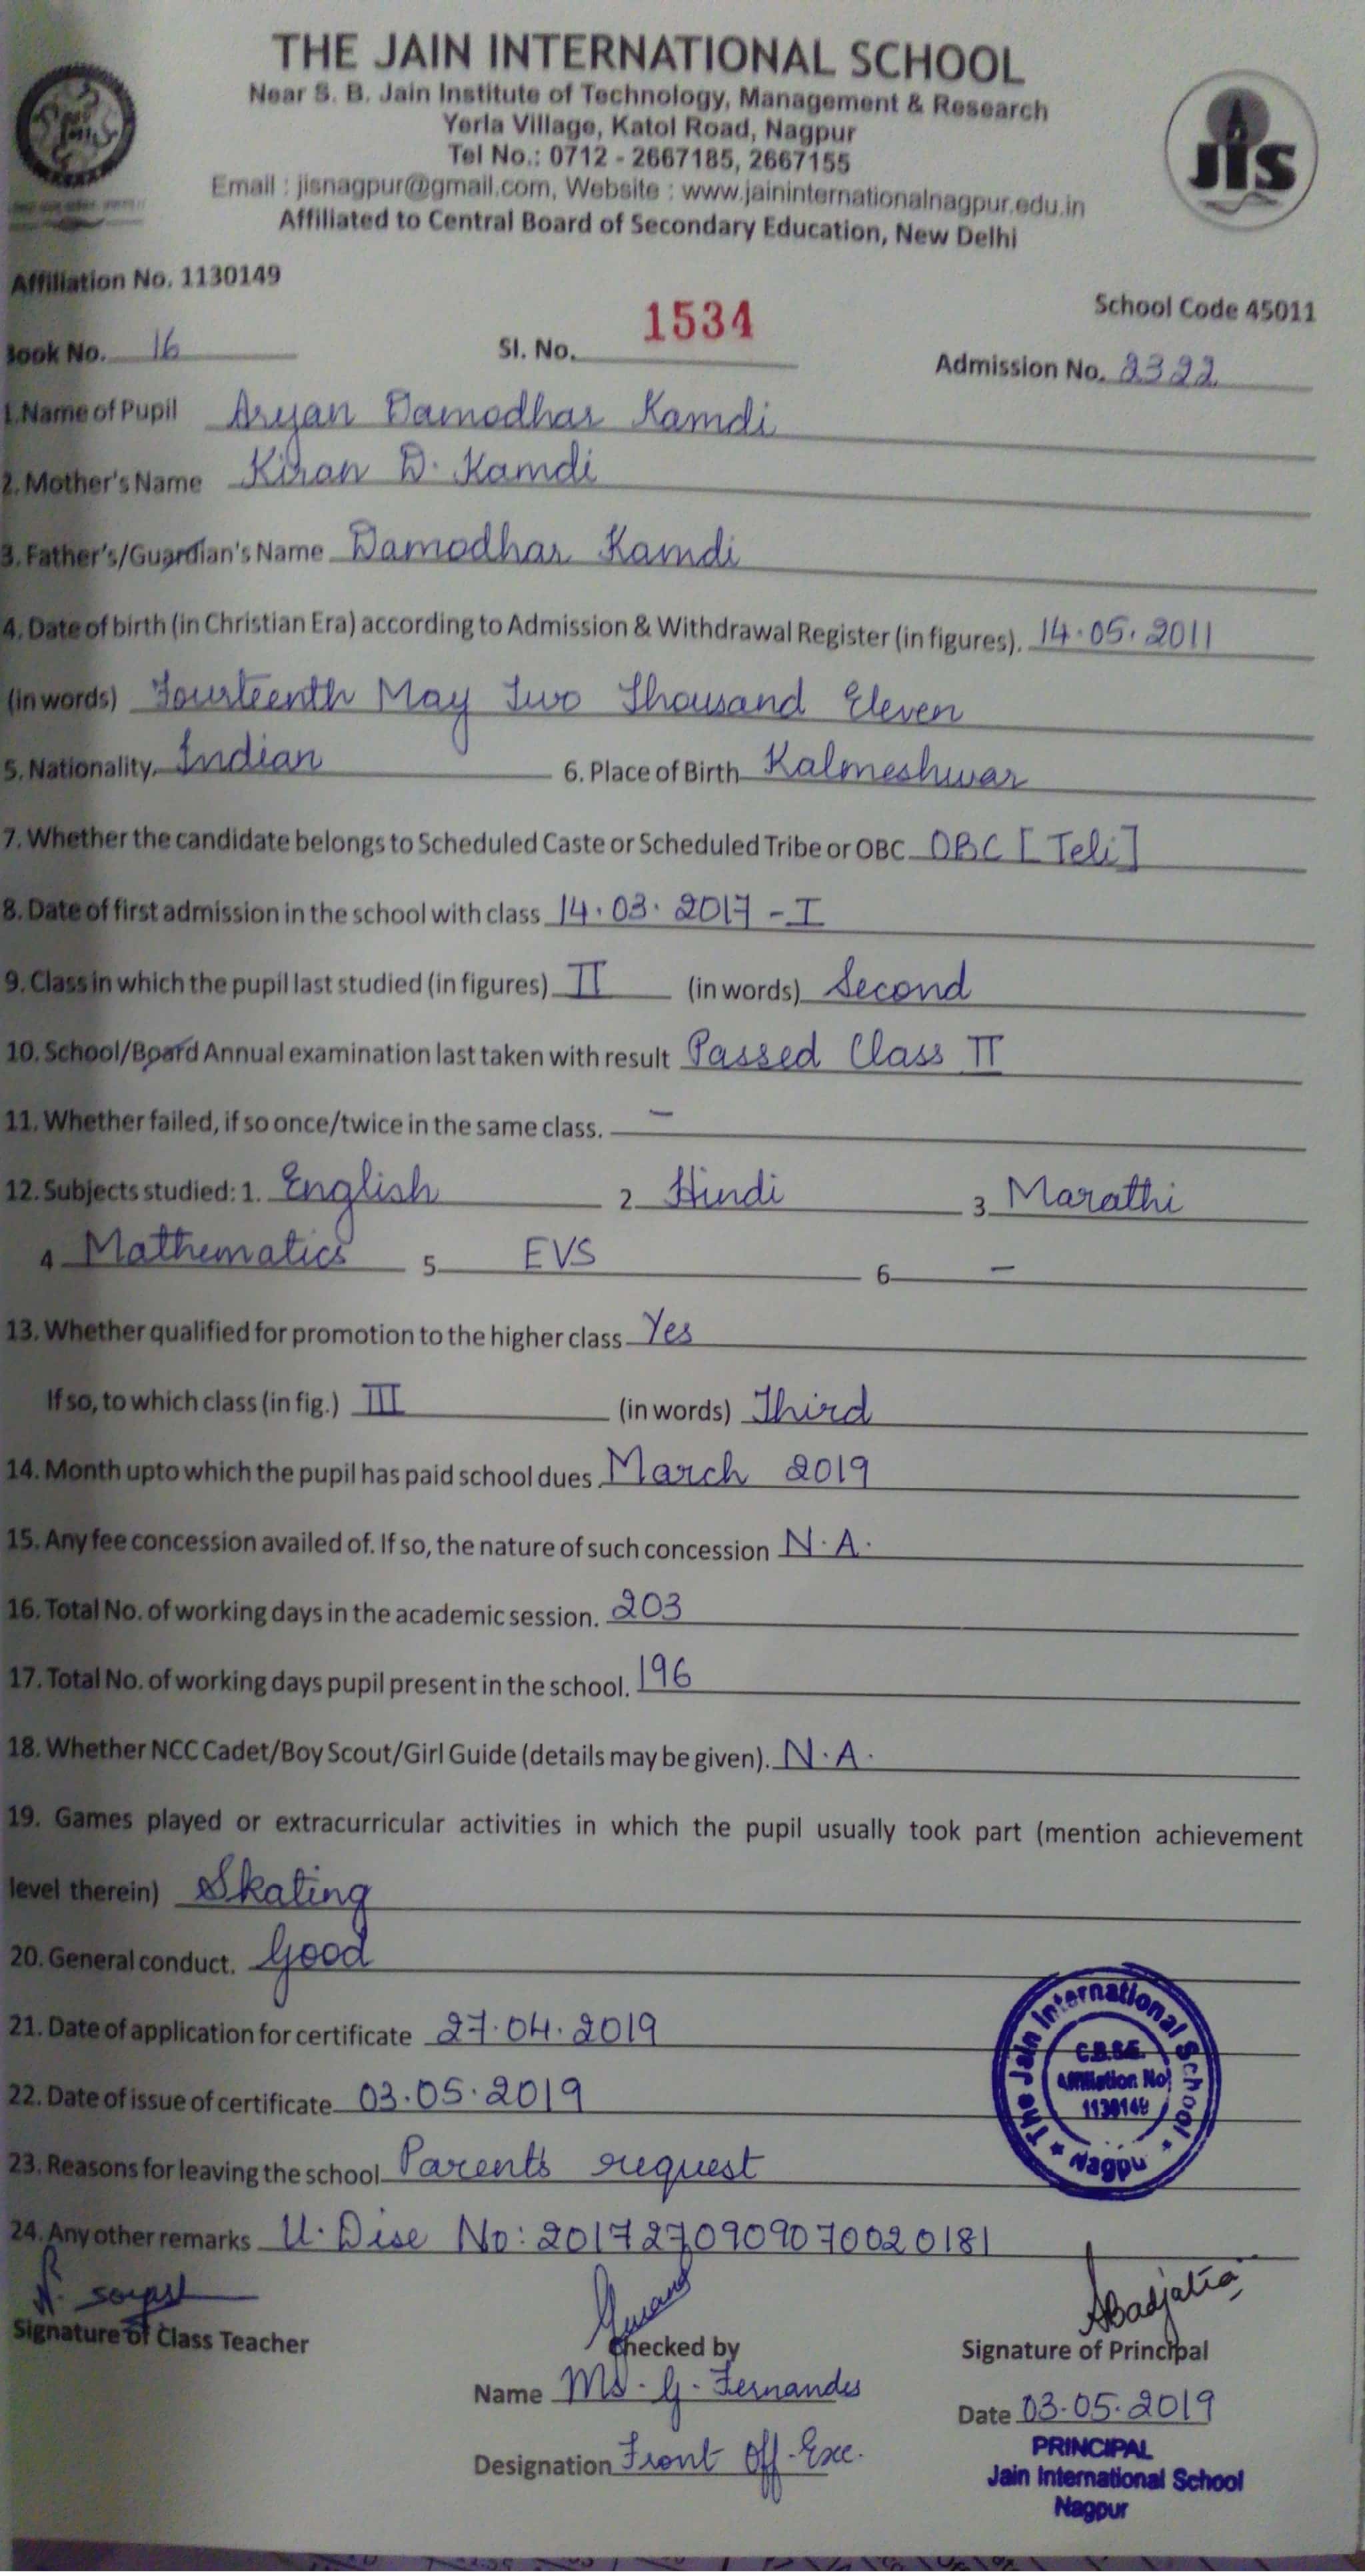 THE JAIN INTERNATIONAL SCHOOL
Near S. B. Jain Institute of Technology, Management & Research
Yerla Village, Katol Road, Nagpur
Tel No.: 0712 - 2667185, 2667155
Email : jisnagpur@gmail.com, Website : www.jaininternationalnagpur.edu.in
Affiliated to Central Board of Secondary Education, New Delhi
JIS
Affiliation No. 1130149
School Code 45011
Book No. 16 Sl. No. 1534 Admission No. 2322
1. Name of Pupil Aryan Damodhar Kamdi
2. Mother's Name Kiran D. Kamdi
3. Father's/Guardian's Name Damodhar Kamdi
4. Date of birth (in Christian Era) according to Admission & Withdrawal Register (in figures). 14.05.2011
(in words) Fourteenth May Two Thousand Eleven
5. Nationality. Indian 6. Place of Birth Kalmeshwar
7. Whether the candidate belongs to Scheduled Caste or Scheduled Tribe or OBC OBC [Teli]
8. Date of first admission in the school with class 14.03.2017 - I
9. Class in which the pupil last studied (in figures) II (in words) Second
10. School/Board Annual examination last taken with result Passed Class II
11. Whether failed, if so once/twice in the same class. –
12. Subjects studied: 1. English 2 Hindi 3 Marathi
4 Mathematics 5 EVS 6 –
13. Whether qualified for promotion to the higher class Yes
If so, to which class (in fig.) III (in words) Third
14. Month upto which the pupil has paid school dues March 2019
15. Any fee concession availed of. If so, the nature of such concession N.A.
16. Total No. of working days in the academic session. 203
17. Total No. of working days pupil present in the school. 196
18. Whether NCC Cadet/Boy Scout/Girl Guide (details may be given). N.A.
19. Games played or extracurricular activities in which the pupil usually took part (mention achievement
level therein) Skating
20. General conduct. Good
21. Date of application for certificate 27.04.2019
22. Date of issue of certificate 03.05.2019
23. Reasons for leaving the school Parent's request
24. Any other remarks U.Dise No: 2017270909070020181
The Jain International School
C.B.S.E.
Affiliation No
1130149
Nagpu
Signature of Class Teacher
Checked by
Signature of Principal
Name Ms. G. Fernandes
Date 03.05.2019
Designation Front Off. Exc.
PRINCIPAL
Jain International School
Nagpur